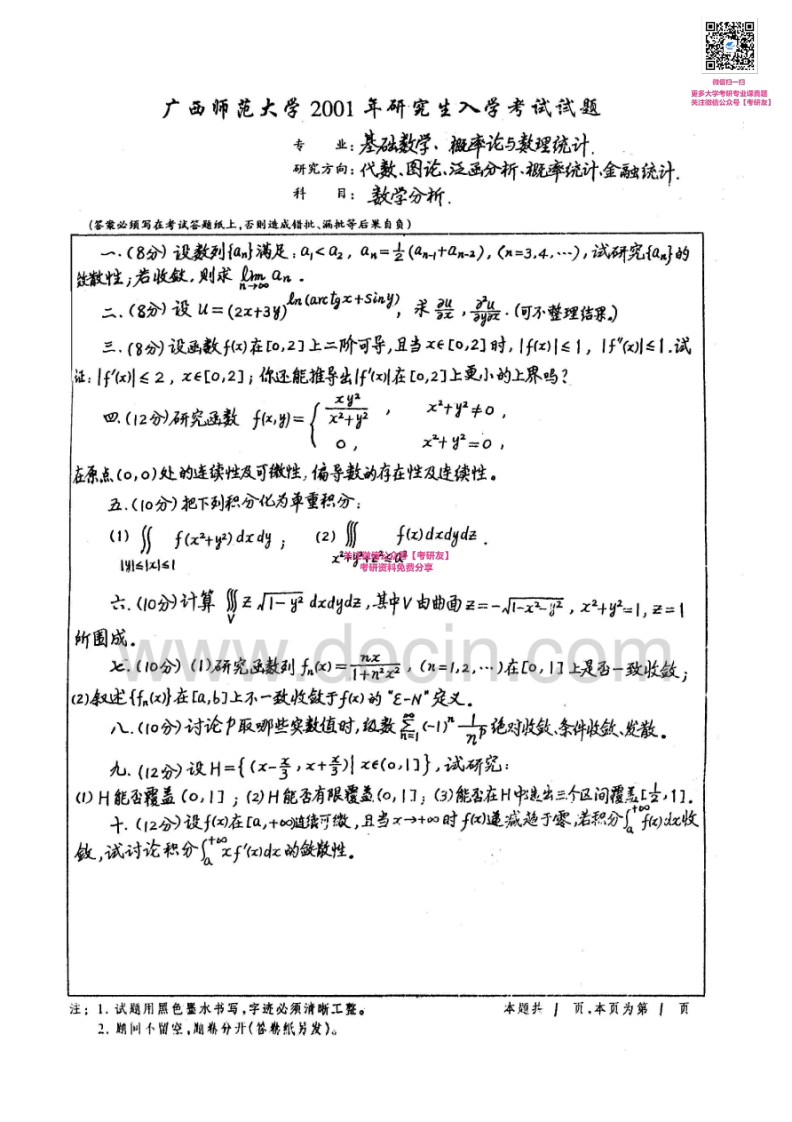 微信扫一扫
更多大学考研专业课真题
关注微信公众号【考研友】
广西师范大学 2001 年研究生入学考试试题
专 业: 基础数学、概率论与数理统计.
研究方向: 代数、图论、泛函分析、概率统计、金融统计.
科 目: 数学分析.
(答案必须写在考试答题纸上,否则造成错批、漏批等后果自负)
一.(8分) 设数列{aₙ}满足: a₁<a₂, aₙ=½(aₙ₋₁+aₙ₋₂), (n=3,4,…), 试研究{aₙ}的
敛散性;若收敛,则求 lim_{n→∞} aₙ.
二.(8分) 设 u=(2x+3y)^{ln(arctgx+siny)}, 求 ∂u/∂x, ∂²u/∂y∂x. (可不整理结果。)
三.(8分) 设函数f(x)在[0,2]上二阶可导,且当x∈[0,2]时,|f(x)|≤1, |f″(x)|≤1.试
证: |f′(x)|≤2, x∈[0,2]; 你还能推导出|f′(x)|在[0,2]上更小的上界吗?
四.(12分)研究函数 f(x,y)={ xy²/(x²+y²), x²+y²≠0,
0, x²+y²=0,
在原点(0,0)处的连续性及可微性,偏导数的存在性及连续性。
五.(10分) 把下列积分化为单重积分:
(1) ∬_{|y|≤|x|≤1} f(x²+y²)dxdy; (2) ∭_{x²+y²+z²≤a²} f(z)dxdydz.
关注微信公众号【考研友】
考研资料免费分享
六.(10分)计算 ∭_V z√(1-y²) dxdydz, 其中V由曲面 z=-√(1-x²-y²), x²+y²=1, z=1
所围成。
www.docin.com
七.(10分) (1)研究函数列 fₙ(x)=nx/(1+n²x²), (n=1,2,…)在[0,1]上是否一致收敛;
(2)叙述{fₙ(x)}在[a,b]上不一致收敛于f(x)的“ε-N”定义.
八.(10分)讨论p取哪些实数值时,级数 ∑_{n=1}^{∞}(-1)ⁿ 1/nᵖ 绝对收敛、条件收敛、发散.
九.(12分) 设 H={(x-x/3, x+x/3)| x∈(0,1]}, 试研究:
(1) H能否覆盖(0,1]; (2) H能否有限覆盖(0,1]; (3)能否在H中选出三个区间覆盖[½,1].
十.(12分)设f(x)在[a,+∞)连续可微,且当x→+∞时f(x)递减趋于零,若积分∫_a^{+∞} f(x)dx收
敛,试讨论积分∫_a^{+∞} xf′(x)dx的敛散性。
注: 1. 试题用黑色墨水书写,字迹必须清晰工整。 本题共 1 页,本页为第 1 页
2. 题间不留空,题卷分开(答卷纸另发)。